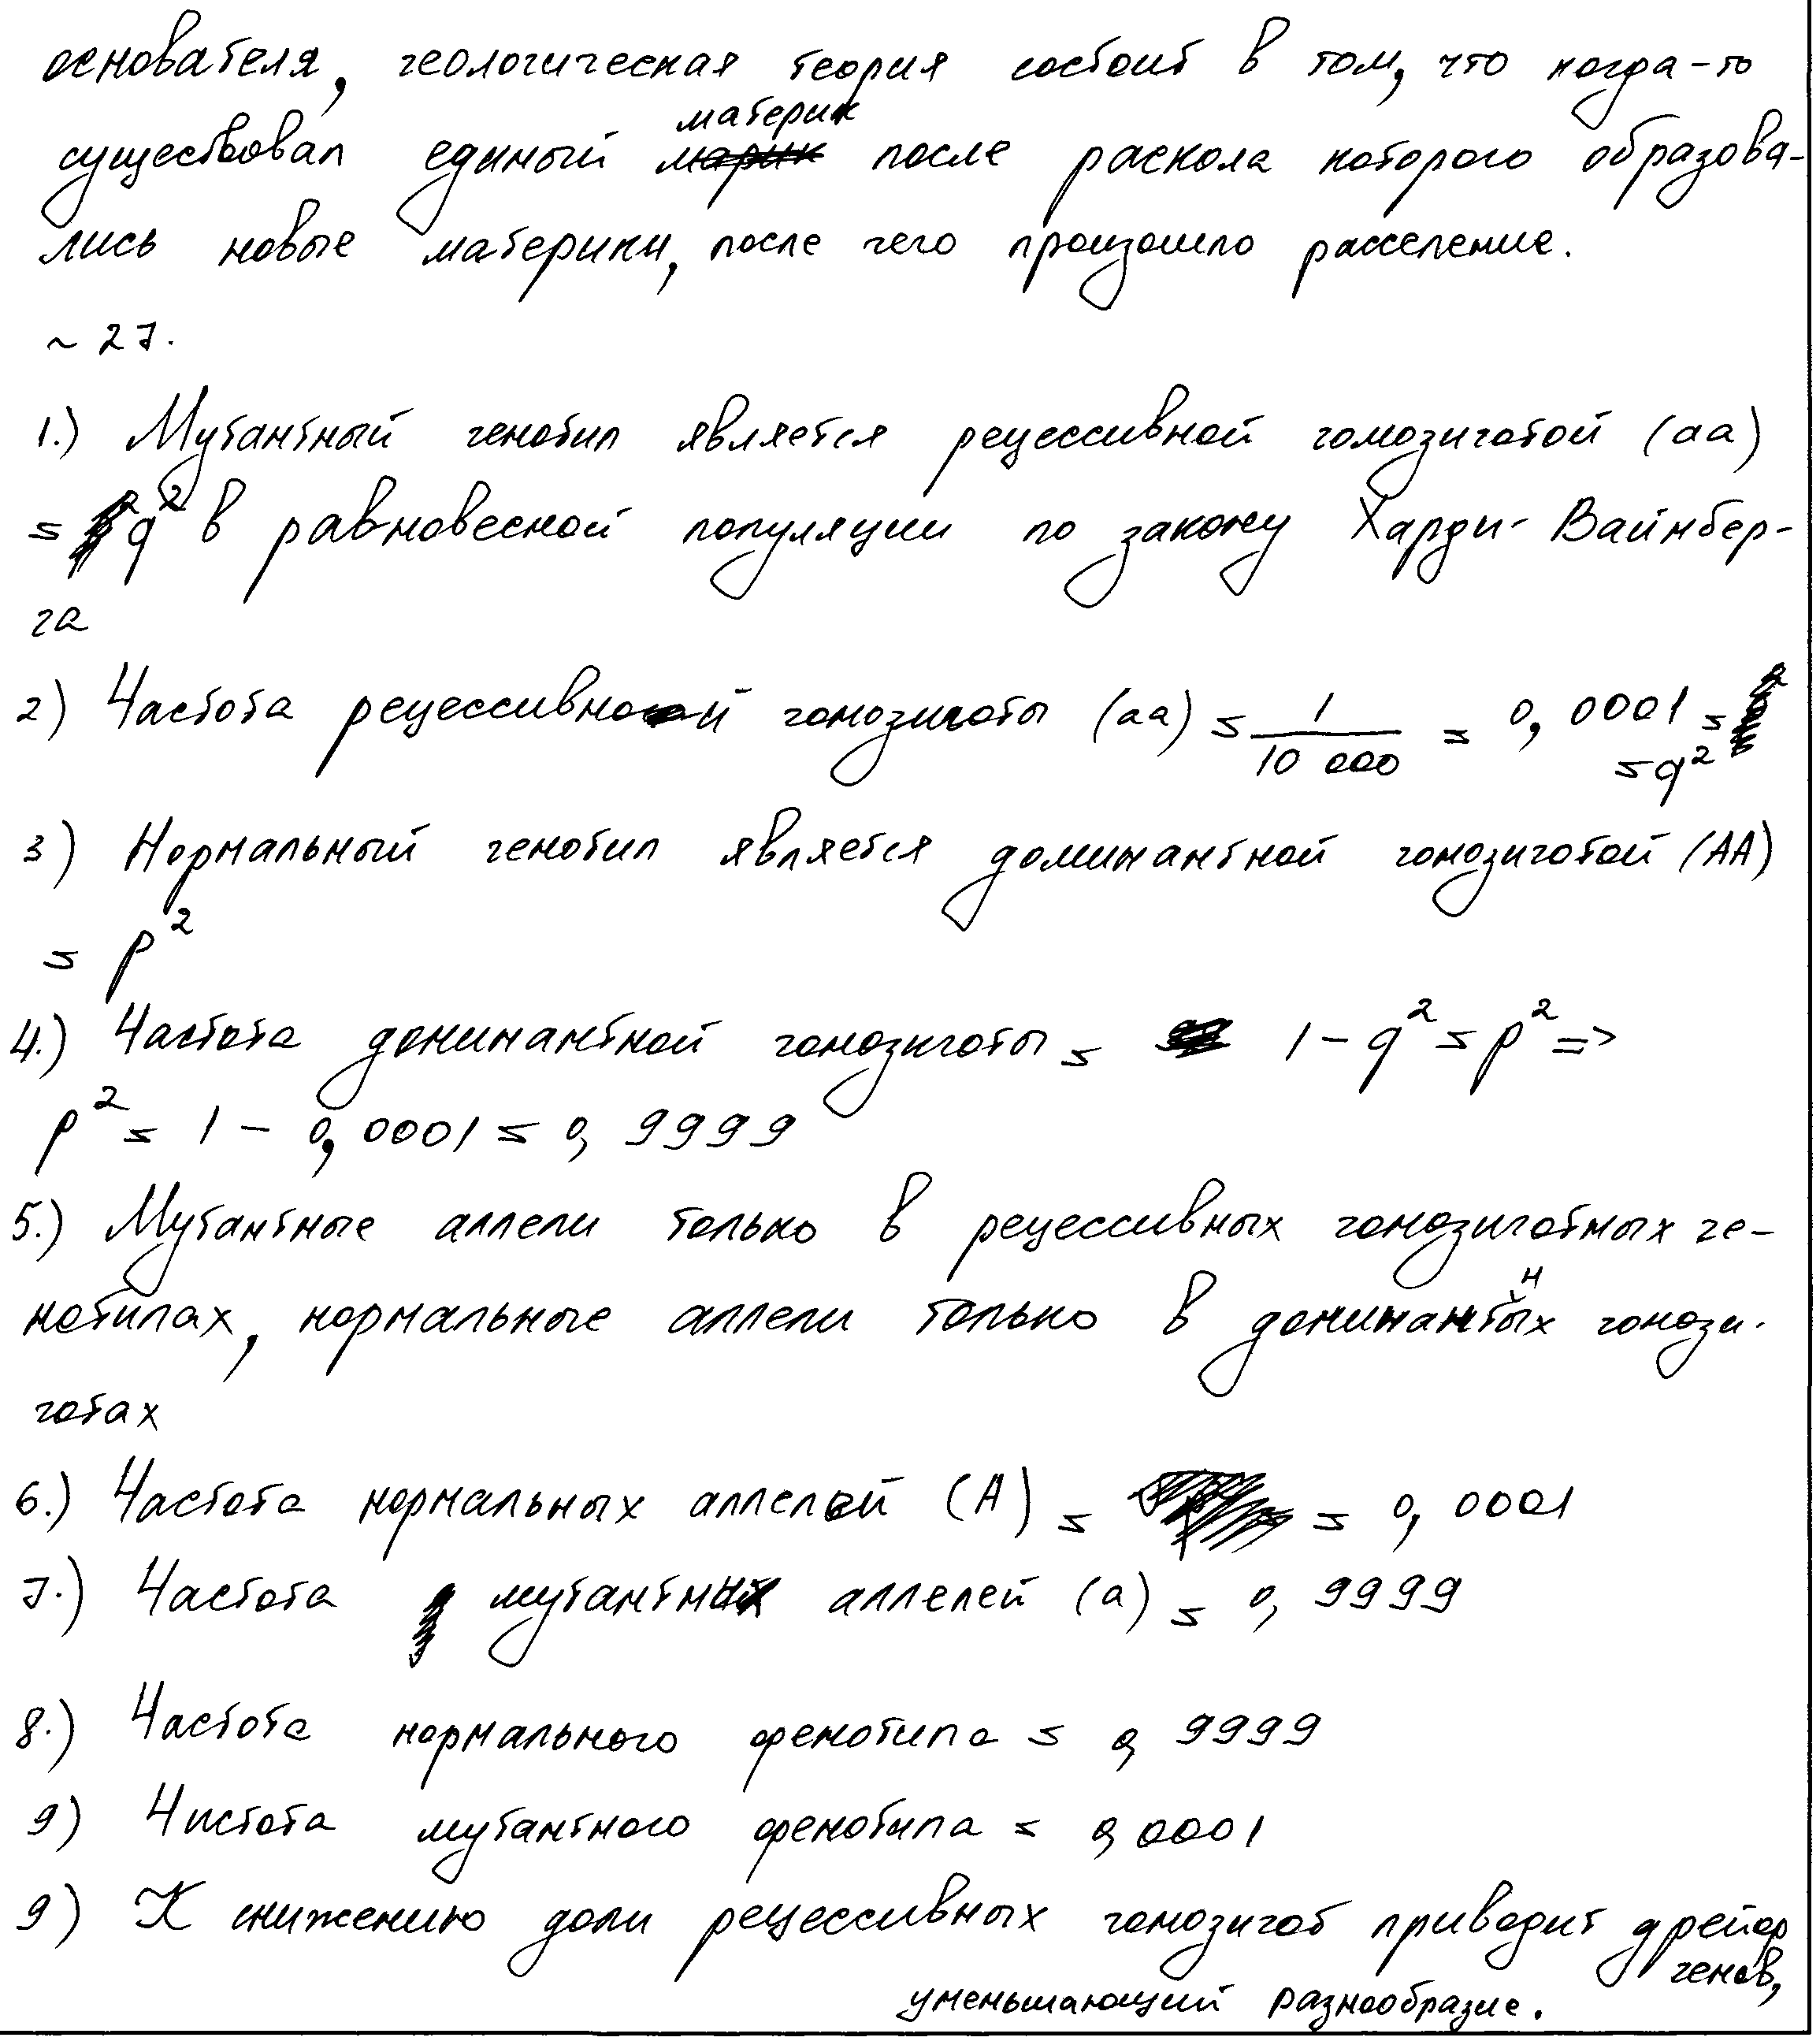 основателя, геологическая теория состоит в том, что когда-то
материк
существовал единый марик после раскола которого образова-
лись новые материки, после чего произошло расселение.
~ 27.
1.) Мутантный генотип является рецессивной гомозиготой (аа)
= q² в равновесной популяции по закону Харди-Вайнбер-
га
2) Частота рецессивной гомозиготы (аа) = 1/10 000 = 0,0001 =
= q²
3) Нормальный генотип является доминантной гомозиготой (АА)
= p²
4.) Частота доминантной гомозиготы = 1 - q² = p² =>
p² = 1 - 0,0001 = 0,9999
5.) Мутантные аллели только в рецессивных гомозиготных ге-
нотипах, нормальные аллели только в доминантных гомози-
готах
6.) Частота нормальных аллелей (А) = = 0,0001
7.) Частота мутантных аллелей (а) = 0,9999
8.) Частота нормального фенотипа = 0,9999
9) Чистота мутантного фенотипа = 0,0001
9) К снижению доли рецессивных гомозигот приводит дрейф
генов,
уменьшающий разнообразие.